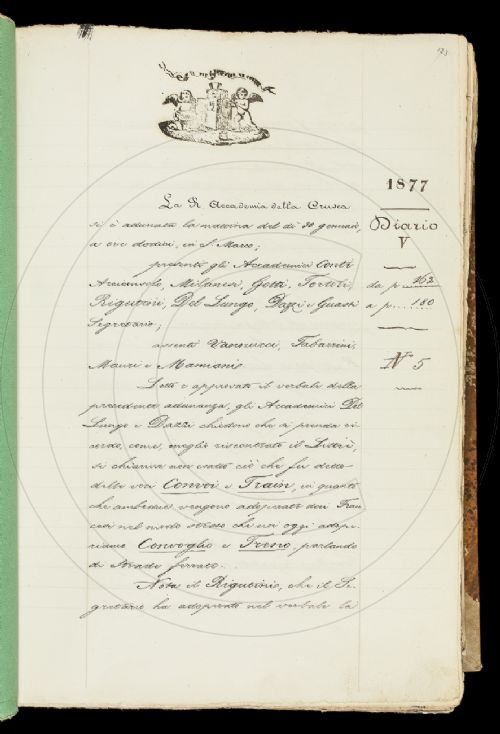 123
1877
Diario
V
da p. 162
a p. 180
N° 5
La R. Accademia della Crusca
si è adunata la mattina del dì 30 gennaio,
a ore dodici, in S. Marco;
presenti gli Accademici Conti
Arciconsolo, Milanesi, Gotti, Tortoli,
Rigutini, Del Lungo, Dazzi e Guasti
Segretario;
assenti Vannucci, Tabarrini,
Mauri e Mamiani.
Letto e approvato il verbale della
precedente adunanza, gli Accademici Del
Lungo e Dazzi chiedono che si prenda ri-
cordo, come, meglio riscontrato il Littré,
si chiarisca non esatto ciò che fu detto
delle voci Convoi e Train, in quanto
che ambedue vengono adoperate dai Fran-
cesi nel modo stesso che noi oggi adope-
riamo Convoglio e Treno, parlando
di strade ferrate.
Nota il Rigutini, che il Se-
gretario ha adoperato nel verbale la